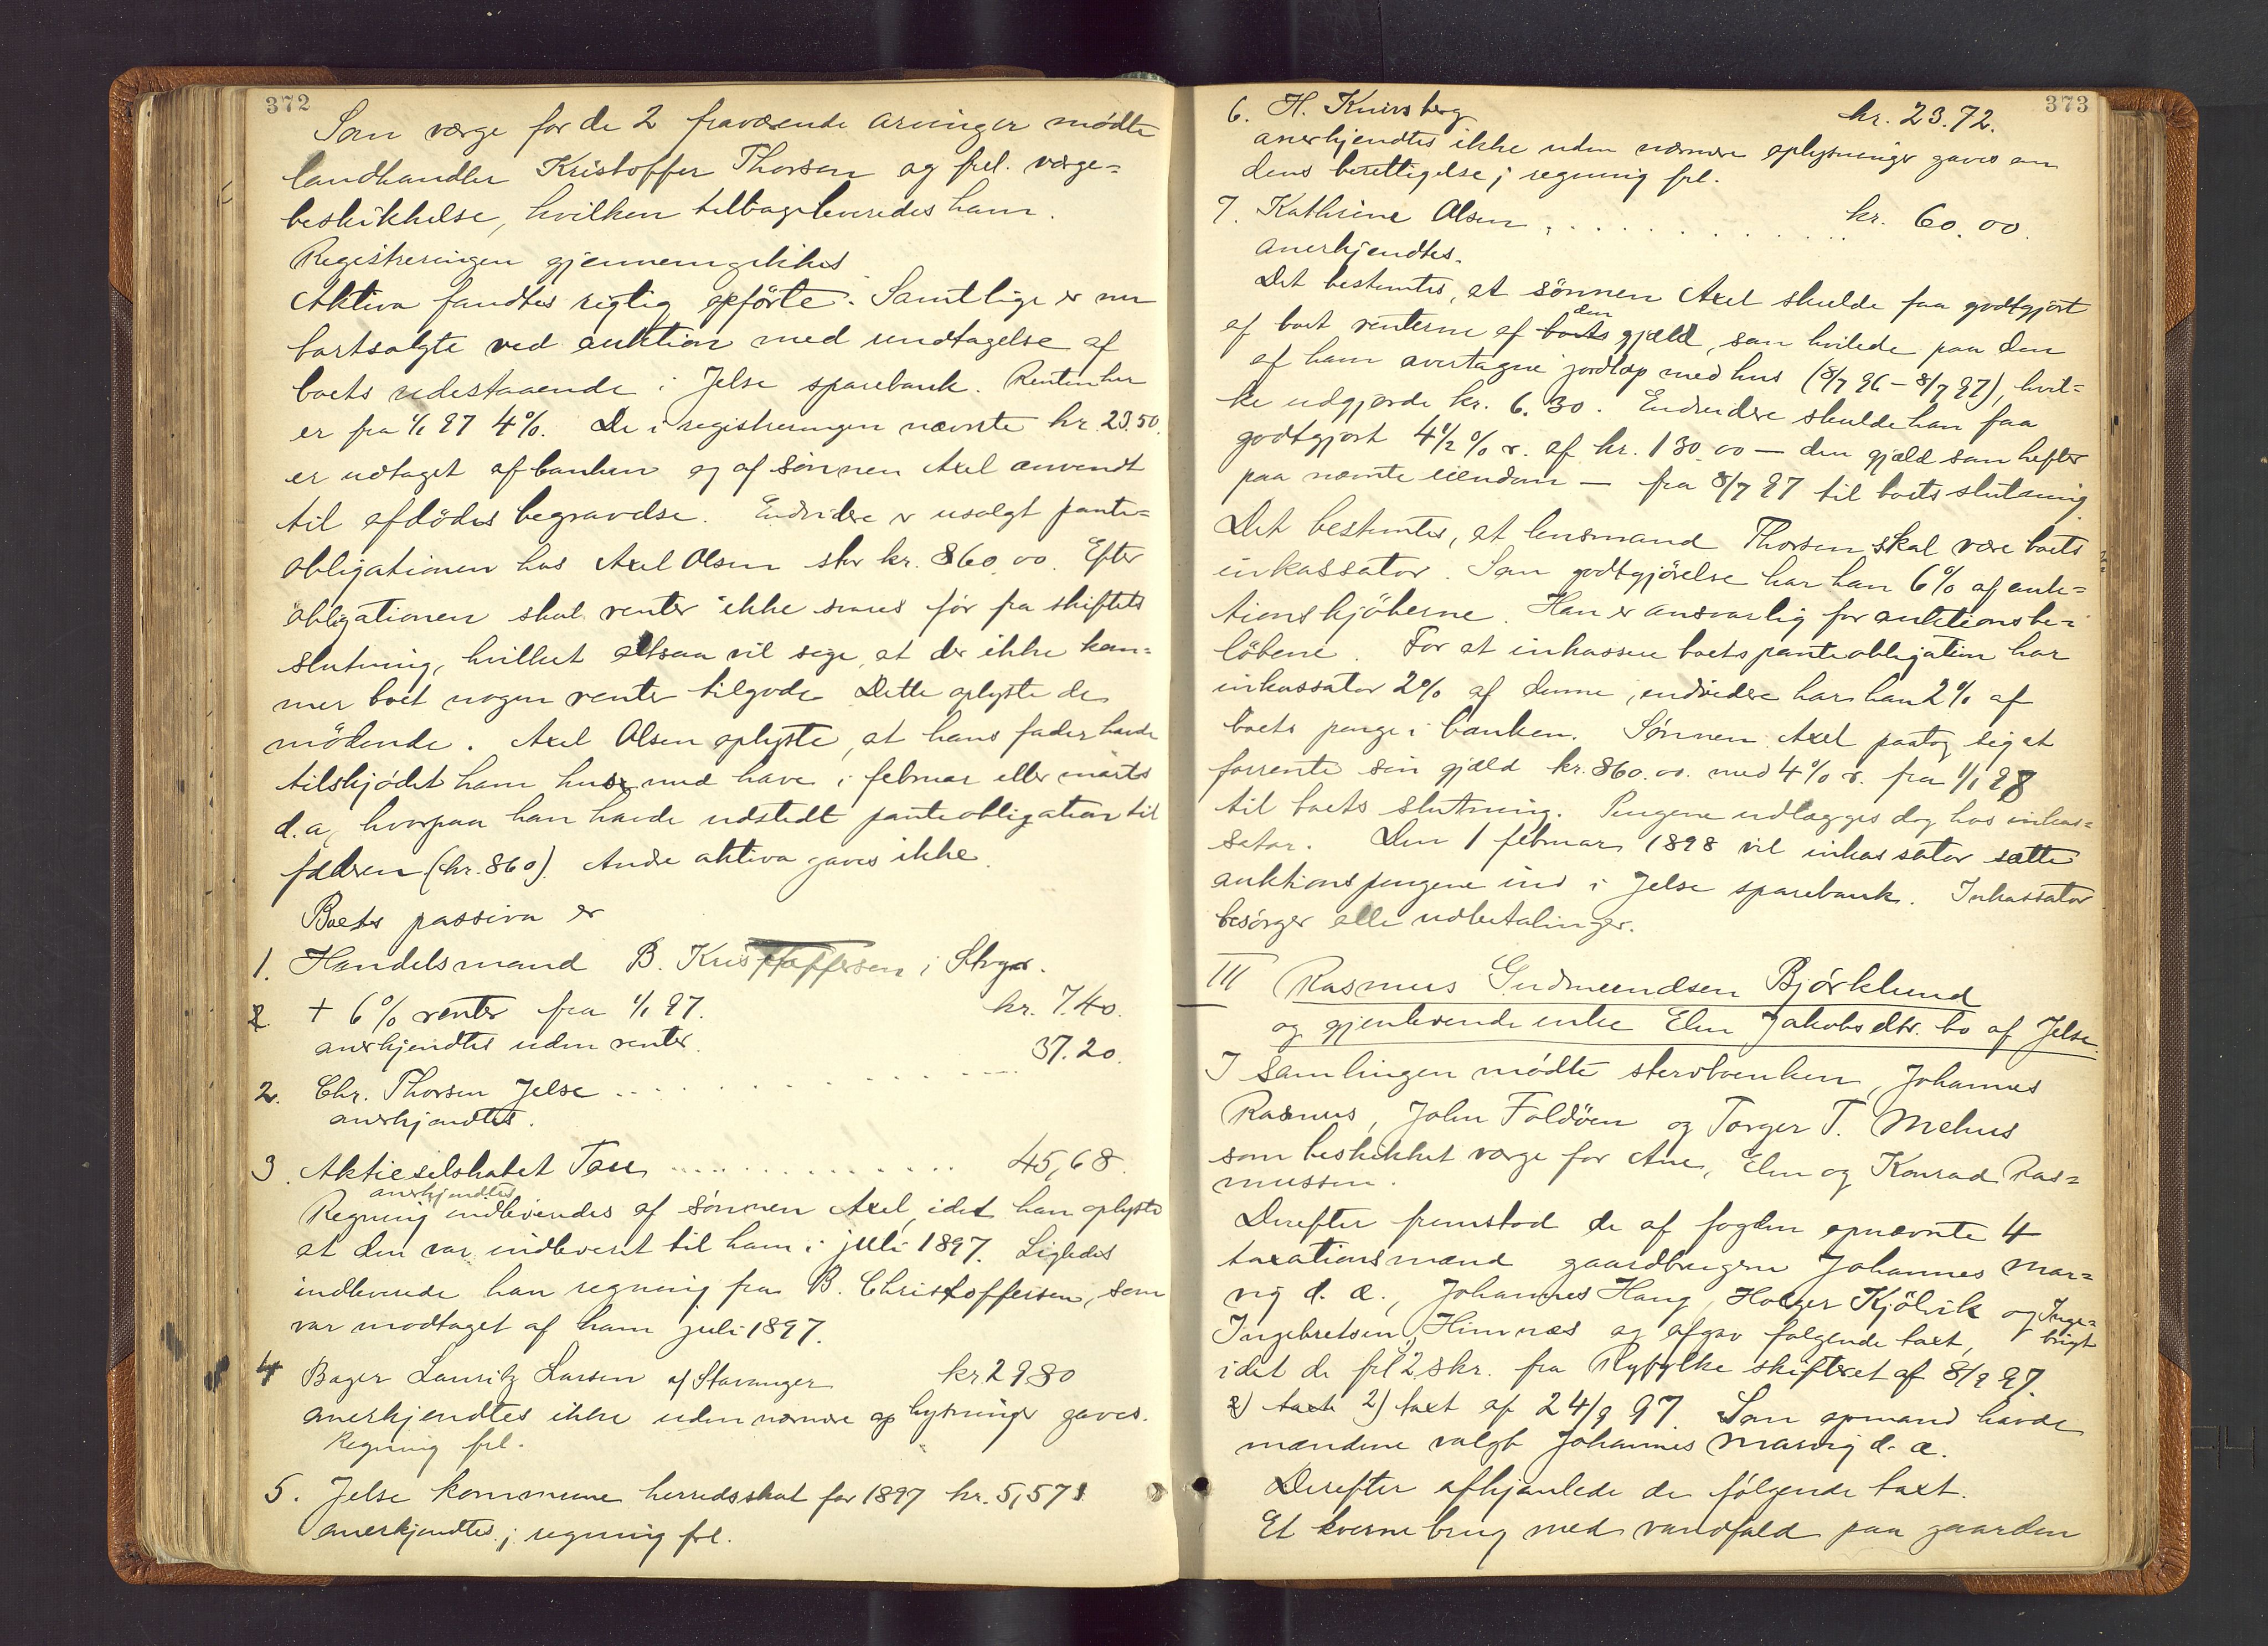 372
Som værge for de 2 fraværende arvinger mødte
landhandler Kristoffer Thorsen og frl. værge=
beskikkelse, hvilken tilbageleveredes ham.
Registreringen gjennemgikkes
Aktiva fandtes rigtig opførte. Samtlige er nu
bortsolgte ved auktion med undtagelse af
boets udestaaende i Jelse sparebank. Renten her
er fra 1/1 97 4%. De i registreringen nævnte kr. 23.50.
er udtaget af banken og af sønnen Axel anvendt
til afdødes begravelse. Endvidere er usolgt pante=
obligationen hos Axel Olsen stor kr. 860.00. Efter
obligationen skal renter ikke svares før fra skiftets
slutning, hvilket altsaa vil sige, at der ikke kom=
mer boet nogen renter tilgode. Dette oplyste de
mødende. Axel Olsen oplyste, at hans fader havde
tilskjødet ham hus med have i februar eller marts
d.a, hvorpaa han havde udstedt panteobligation til
faderen (kr. 860). Andre aktiva gaves ikke.
Boets passiva er
1. Handelsmand B. Kristoffersen i Stvgr.
2 + 6% renter fra 1/1 97. kr. 7.40.
anerkjendtes uden renter. 37.20.
2. Chr. Thorsen Jelse
anerkjendtes.
3. Aktieselskabet Tou 45,68.
anerkjendtes
Regning indleveredes af sønnen Axel, idet han oplyste
at den var indleveret til ham i juli 1897. Ligeledes
indleverede han regning fra B. Christoffersen, som
var modtaget af ham juli 1897.
4 Bager Lauritz Larsen af Stavanger kr 29.80
anerkjendtes ikke uden nærmere oplysninger gaves.
Regning frl.
5. Jelse kommune herredsskat for 1897 kr. 5,57
anerkjendtes; regning frl.
373
6. H. Knivsberg kr. 23.72.
anerkjendtes ikke uden nærmere oplysninger gaves om
dens berettigelse; regning frl.
7. Kathrine Olsen kr. 60.00.
anerkjendtes.
Det bestemtes, at sønnen Axel skulde faa godtgjort
den
af boet renterne af boets gjæld, som hvilede paa den
af ham overtagne jordlap med hus (8/7 96 - 8/7 97), hvil=
ke udgjorde kr. 6.30. Endvidere skulde han faa
godtgjort 4 1/2 % r. af kr. 130.00 — den gjæld som hefter
paa nævnte eiendom — fra 8/7 97 til boets slutning.
Det bestemtes, at lensmand Thorsen skal være boets
inkassator. Som godtgjørelse har han 6% af auk=
tionskjøberne. Han er ansvarlig for auktionsbe=
løbene. For at inkassere boets panteobligation har
inkassator 2% af denne, endvidere har han 2% af
boets penge i banken. Sønnen Axel paatog sig at
forrente sin gjæld kr. 860.00. med 4% r. fra 1/1 98
til boets slutning. Pengene udlægges dog hos inkas=
sator. Den 1 februar 1898 vil inkassator sætte
auktionspengene ind i Jelse sparebank. Inkassator
besørger alle udbetalinger.
III Rasmus Gudmundsen Bjørklund
og gjenlevende enke Elen Jakobsdtr. bo af Jelse.
I samlingen mødte stervboenken, Johannes
Rasmus, John Foldøen og Torger T. Mehus
som beskikket værge for Ane, Elen og Konrad Ras=
mussen.
Derefter fremstod de af fogden opnævnte 4
taxationsmænd gaardbrugerne Johannes Mar=
vig d. æ., Johannes Haug, Holger Kjølvik og Inge=
brigt
Ingebretsen Himnæs og afgav følgende taxt,
idet de frl 2 skr. fra Ryfylke skifteret af 8/9 97.
2) taxt 2) taxt af 24/9 97. Som opmand havde
mændene valgt Johannes Marvig d. æ.
Derefter afhjemlede de følgende taxt.
Et kvernebrug med vandfald paa gaarden